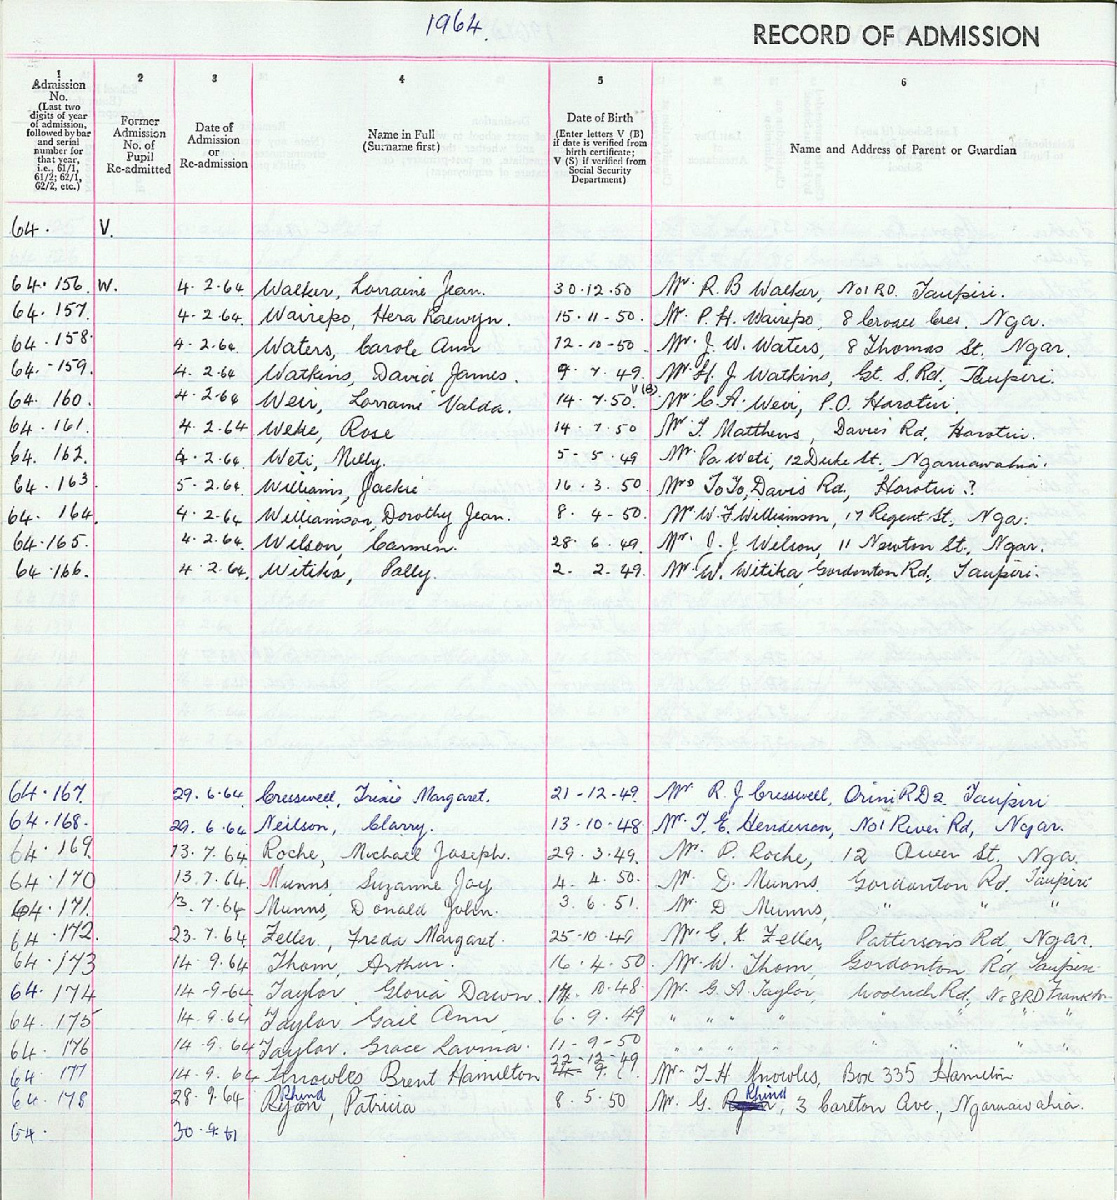 1964.
RECORD OF ADMISSION
1 2 3 4 5 6
Admission No. (Last two digits of year of admission, followed by bar and serial number for that year, i.e., 61/1, 61/2; 62/1, 62/2, etc.)
Former Admission No. of Pupil Re-admitted
Date of Admission or Re-admission
Name in Full (Surname first)
Date of Birth (Enter letters V (B) if date is verified from birth certificate; V (S) if verified from Social Security Department)
Name and Address of Parent or Guardian
64. V.
64.156 W. 4.2.64 Walker, Lorraine Jean. 30.12.50 Mr. R. B Walker, No 1 RD. Taupiri.
64.157. 4.2.64 Wairepo, Hera Raewyn. 15-11-50. Mr. P. H. Wairepo, 8 Cres. Nga.
64.158 4.2.64 Waters, Carole Ann 12-10-50 Mr. J. W. Waters, 8 Thomas St. Ngar.
64.-159. 4.2.64 Watkins, David James. 9.7.49. Mr H. J Watkins, Gt. S. Rd, Taupiri.
64.160. 4.2.64 Weir, Lorraine Valda. 14.7.50. V (B) Mr C. A. Weir, P.O. Horotiu.
64.161. 4.2.64 Weke, Rose 14.7.50 Mr T. Matthews, Davies Rd, Horotiu.
64.162. 4.2.64 Weti, Milly. 5-5.49 Mr Weti, 12 Duke St. Ngaruawahia.
64.163. 5.2.64 Williams, Jackie 16.3.50. Mrs ToTo, Davis Rd, Horotiu?
64.164. 4.2.64 Williamson, Dorothy Jean. 8.4-50. Mr W. J Williamson, 17 Regent St, Nga.
64.165. 4.2.64 Wilson, Carmen. 28.6.49. Mr. J. Wilson, 11 Newton St., Ngar.
64.166. 4.2.64 Witika, Polly. 2.2.49. Mr W. Witika, Gordonton Rd, Taupiri.
64.167. 29.6.64 Cresswell, Trixie Margaret. 21-12-49. Mr R. J Cresswell, Orini R.D 2. Taupiri
64.168. 29.6.64 Neilson, Clarry. 13-10-48 Mr. T. E. Henderson, No 1 River Rd, Ngar.
64.169. 13.7.64 Roche, Michael Joseph. 29.3.49. Mr. P. Roche, 12 Queen St. Nga.
64.170 13.7.64. Munns, Suzanne Joy 4.4.50. Mr. D. Munns. Gordonton Rd. Taupiri
64.171. 13.7.64 Munns, Donald John. 3.6.51. Mr. D Munns, " " "
64.172. 23.7.64 Zeller, Freda Margaret. 25-10.49 Mr. G. K. Zeller, Pattersons Rd, Ngar.
64.173 14.9.64 Thom, Arthur. 16.4.50. Mr. W. Thom, Gordonton Rd, Taupiri.
64.174 14-9-64 Taylor, Gloria Dawn. Mr. G. A Taylor, Rd, No 8 RD Frankton
64.175 14.9.64 Taylor Gail Ann 6.9.49 " " " " " "
64.176 14.9.64 Taylor. Grace Lavinia. 11-9-50 " " " " " "
64.177 14.9.64 Knowles Brent Hamilton 22-12-49 Mr. T-H Knowles, Box 335 Hamilton
64.178 28.9.64 Ryan Rhind, Patricia 8.5.50 Mr. G. Rhind, 3 Carlton Ave., Ngaruawahia.
64. 30.9.61